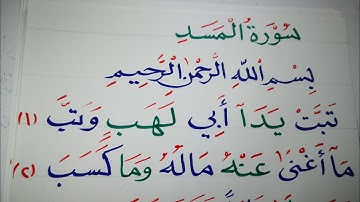 سُورَةُ الْمَسَدِ
بِسْمِ اللّٰهِ الرَّحْمٰنِ الرَّحِيمِ
تَبَّتْ يَدَآ أَبِي لَهَبٍ وَتَبَّ (١)
مَآ أَغْنَىٰ عَنْهُ مَالُهُ وَمَا كَسَبَ (٢)